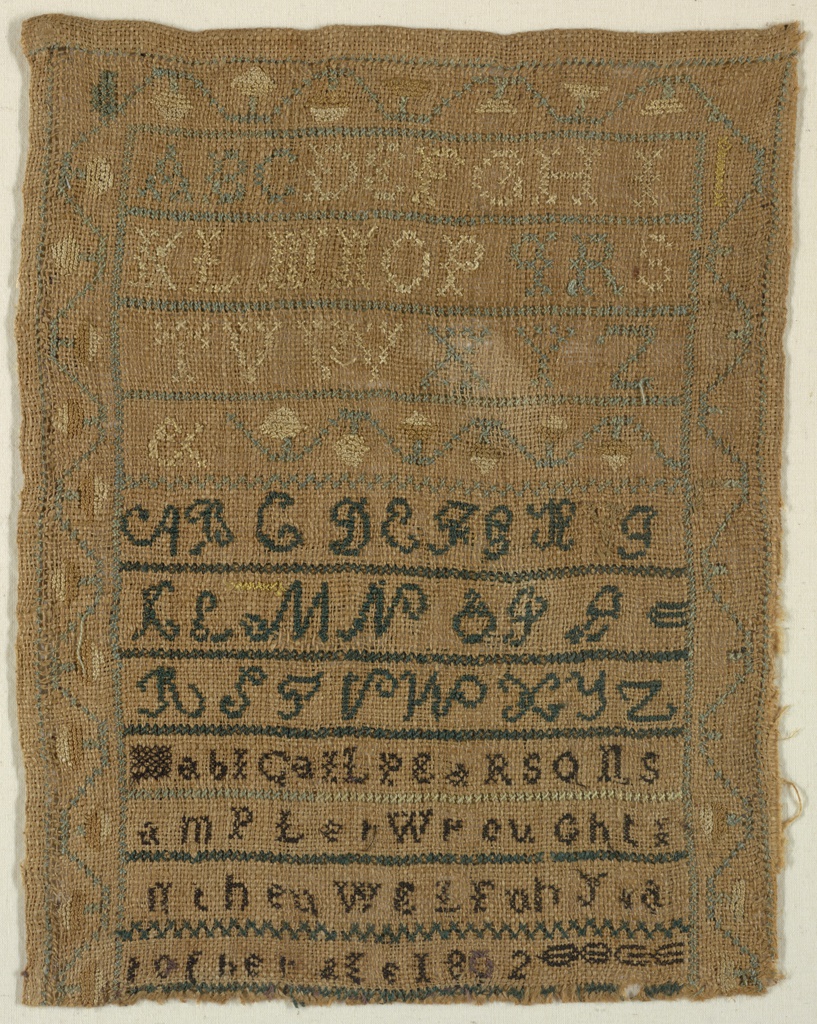 ABCDEFGHI
KLMNOPQRS
TVWXYZ
&
ABCDEFGHI
KLaMNOPQ
RSTVWXYZ
abIGaiLPEaRSONS
amPLerWrouGhti
ntheqWELFahYea
rofherage1802